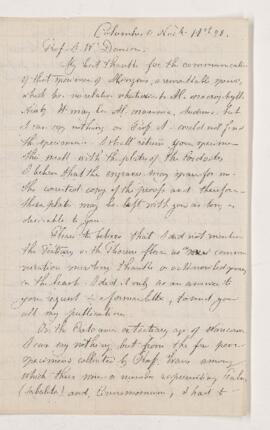 Columbus O. Nov 18th 88.
Prof. J. W. Dawson.
My best thanks for the communication
of that specimen of Menzonii, a remarkable species,
which has no relation whatever to M. macrophylla
Newb. It may be M. but
I can say nothing as Prof. L. could not find
the specimen. I shall return your specimen
this week with the plates of the
I believe that the engraver may than for me
the corrected copy of the proofs and therefore
these plates may be left with you as long as
desirable to you.
Please to believe that I did not mention
the Tertiary or the Thorium flora as new commu-
nication meriting thanks or acknowledgement,
in the least. I did it only as an answer to
your request in a former letter, to send you
all my publications.
On the Cretaceous or tertiary age of
I can say nothing but from the few poor
specimens collected by Prof. Evans among
which there were a number representing Sabal
(Sabalites) and Cinnamomum, I had to